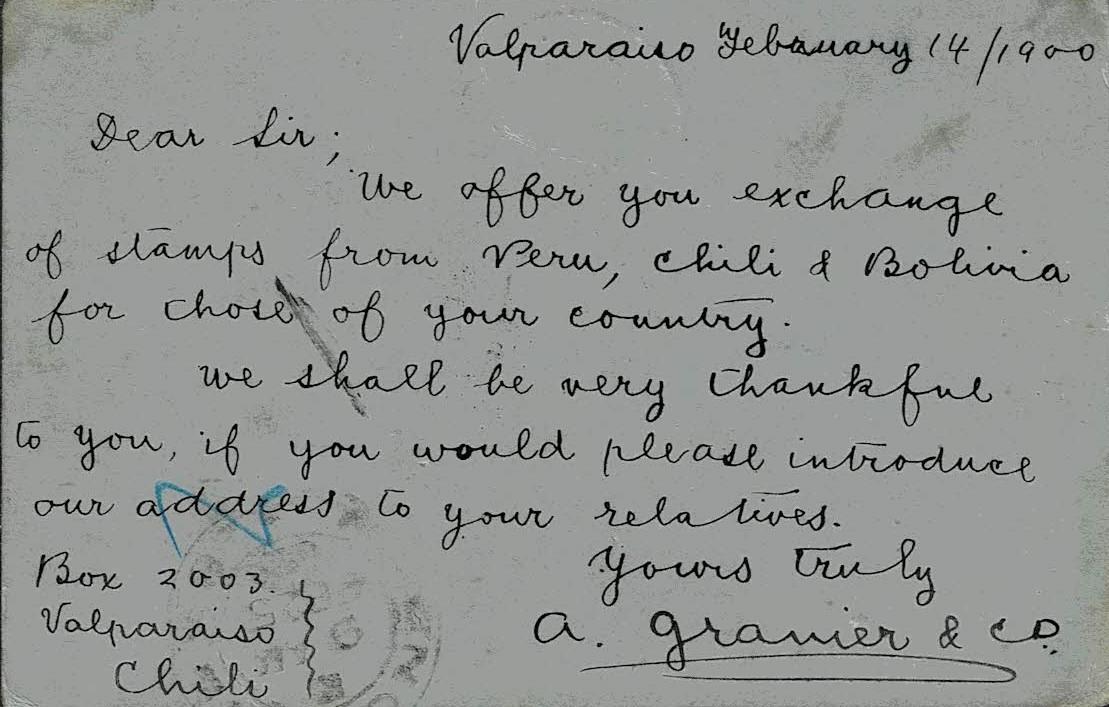 Valparaiso February 14/1900
Dear Sir;
We offer you exchange
of stamps from Peru, Chili & Bolivia
for those of your country.
We shall be very thankful
to you, if you would please introduce
our address to your relatives.
Yours truly
A. Granier & Co.
Box 2003.
Valparaiso
Chili